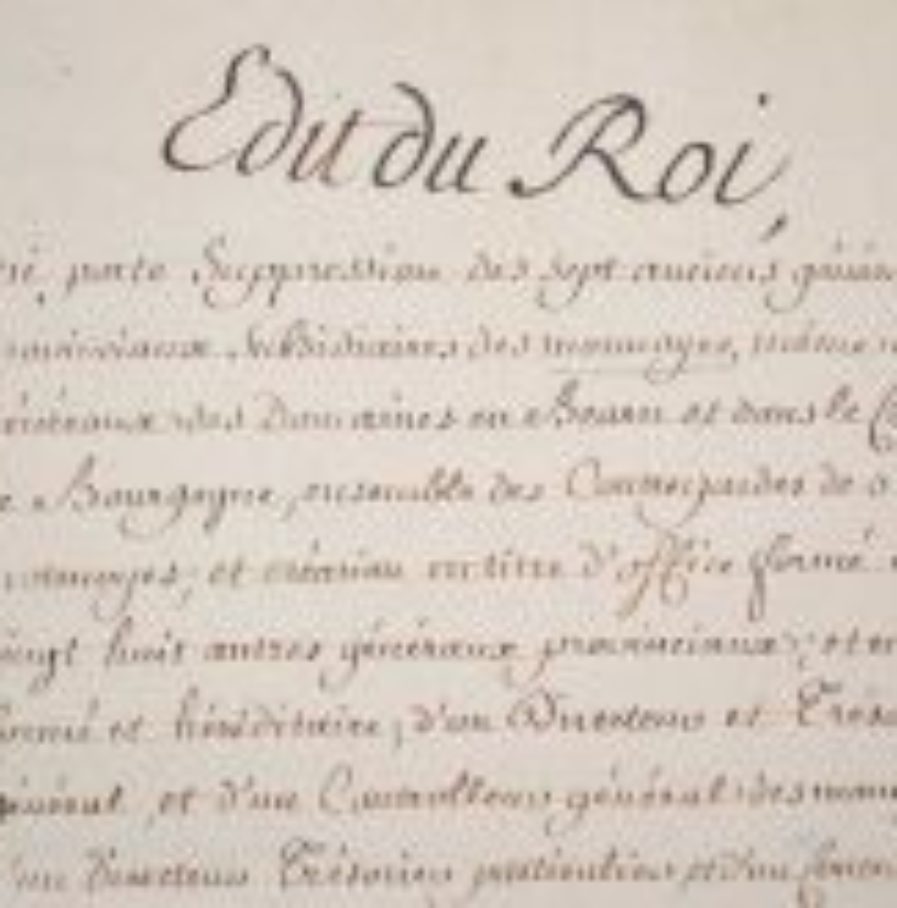 Edit du Roi,
porte Suppression des sept anciens généra
provinciaux Subsidiaires des monnoyes, même
des Domaines en Bearn et dans le
Bourgogne, ensemble des Contregardes de
monnoyes, et création en titre d'office formé
vingt huit autres généraux provinciaux, et en
formé et héréditaire, d'un Directeur et Tréso
général, et d'un Controlleur général des monn
d'un Directeur Trésorier particulier et d'un